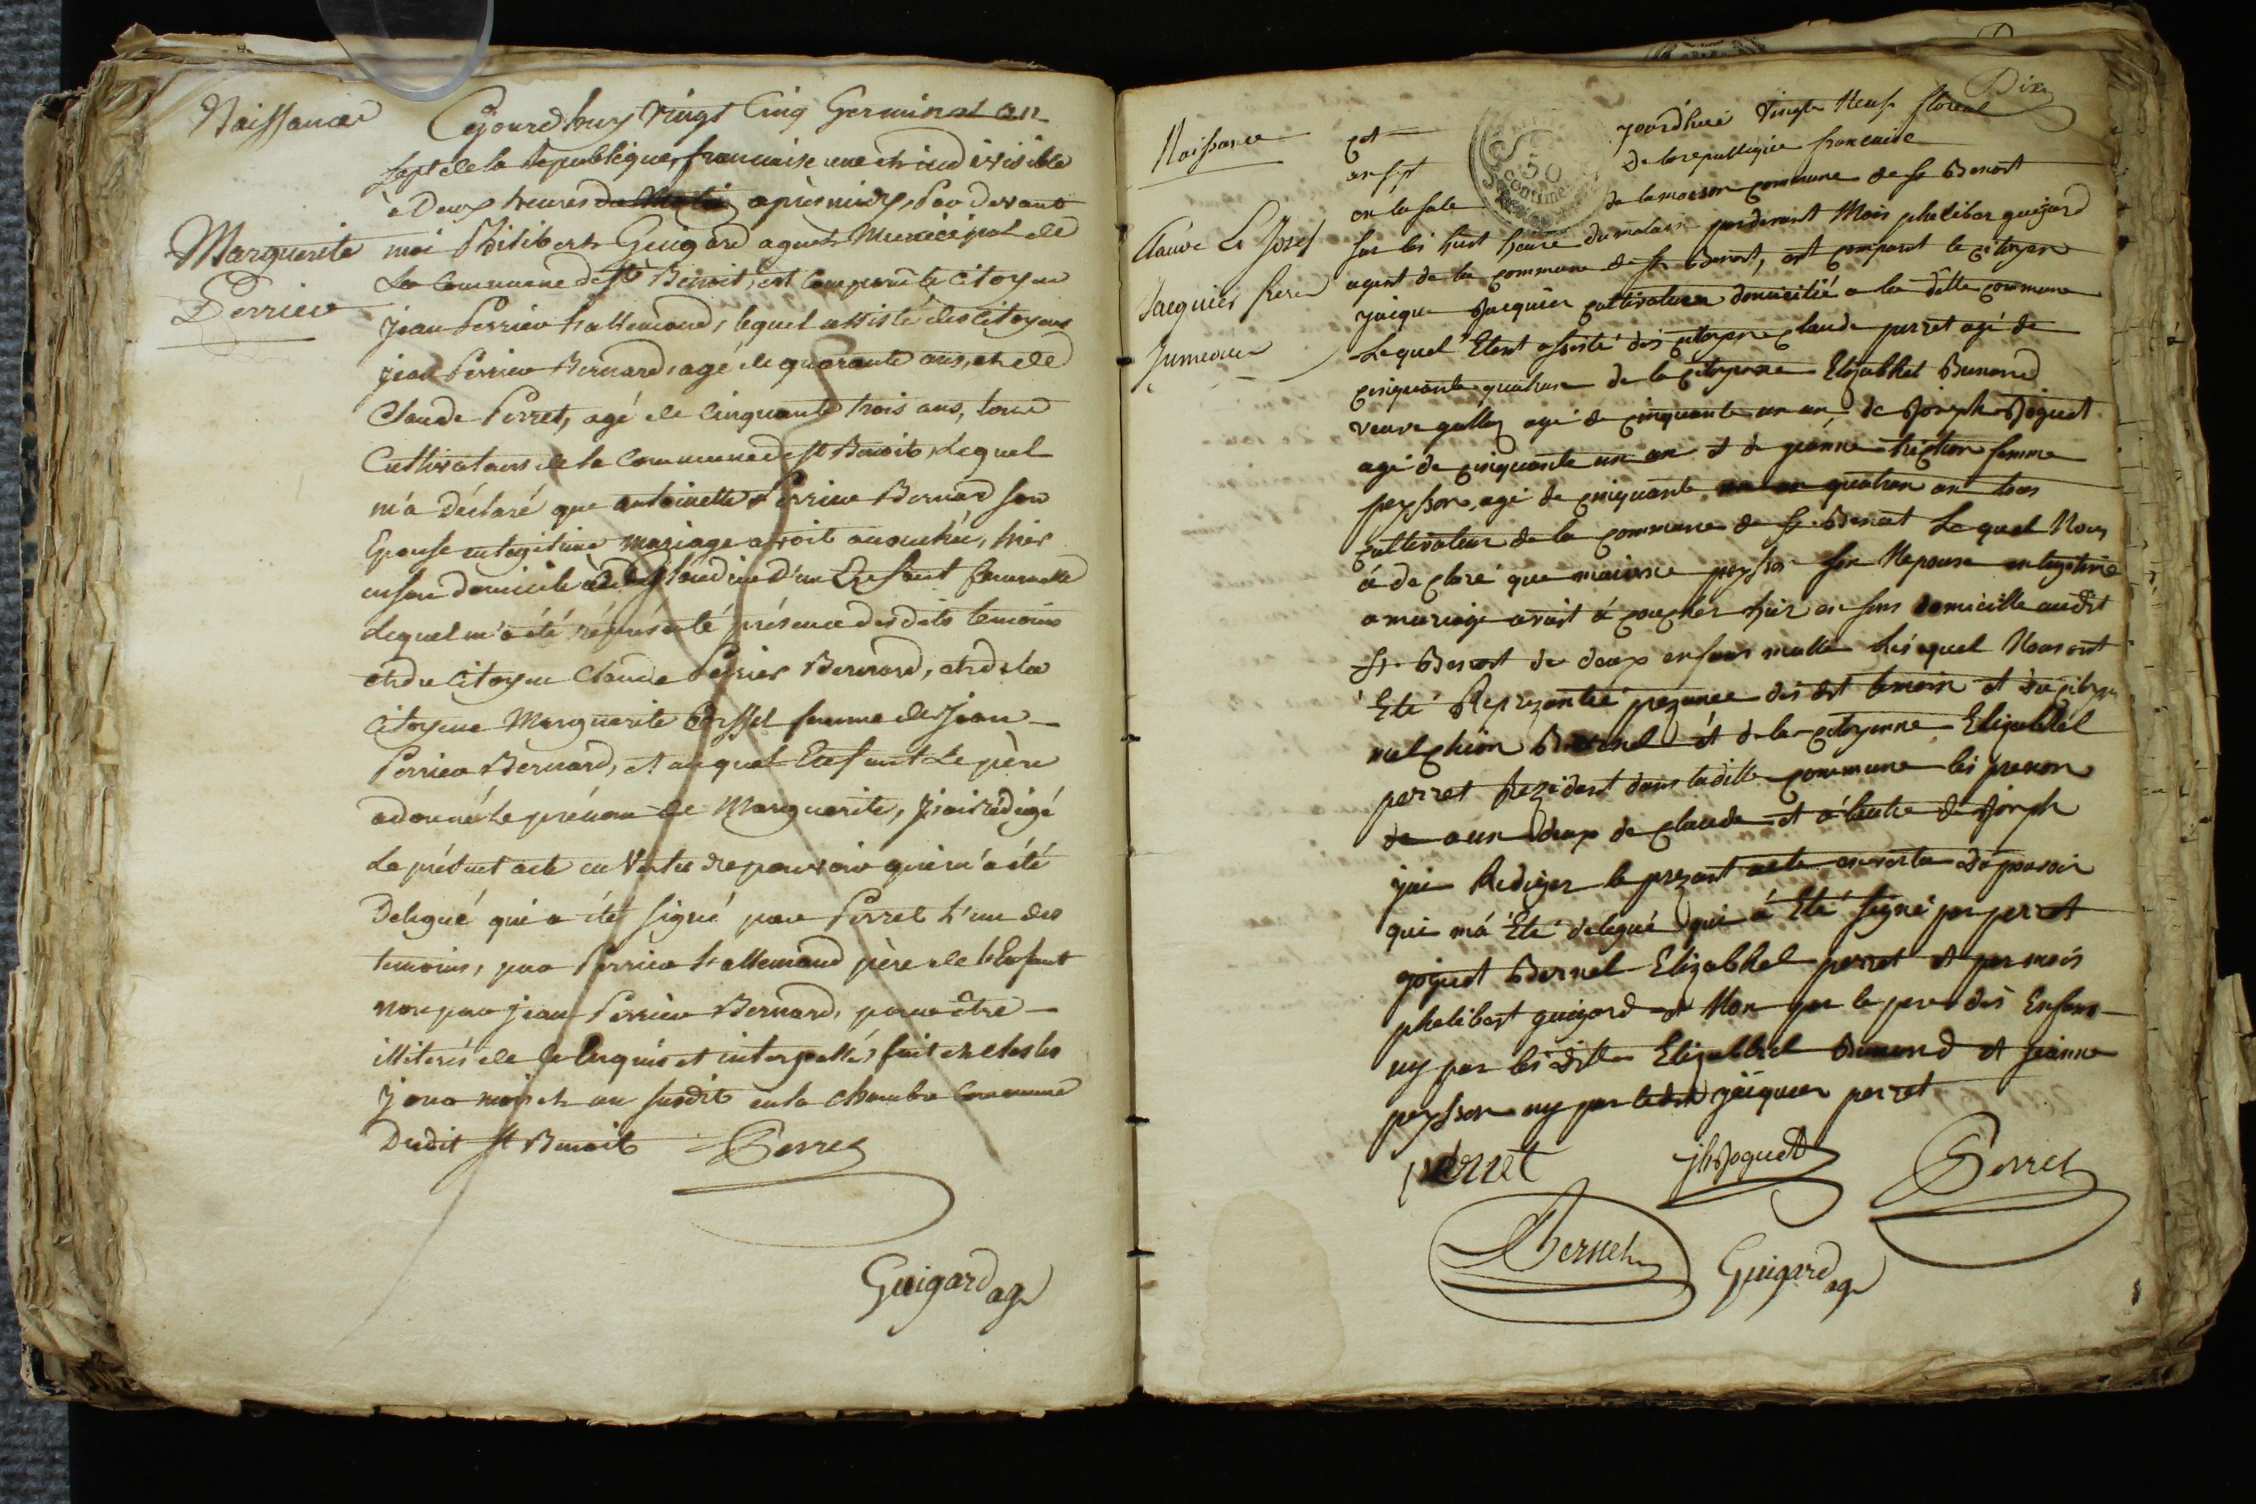 Naissance
Cejourd'huy vingt Cinq Germinal an
sept de la Republique francaise une et indivisible
à Deux heures du Matin après midy, Par devant
Marguerite
Perrier
moi Philibert Guigard agent Municipal de
La Commune de St Benoit, est comparu le citoyen
jean Perrier Lallemand, lequel assisté des citoyens
jean Perrier Bernard, agé de quarante ans, et de
Claude Perret, agé de Cinquante trois ans, tous
Cultivateurs de la Commune de St Benoit, Lequel
m'a déclaré que antoinette Perrier Bernard son
Epouse en legitime mariage avoit accouchée, hier
en son domicile d'un Enfant femmelle
Lequel m'a été réprésenté présence desdits temoins
et du citoyen Claude Perrier Bernard, et de la
Citoyene Marguerite femme de Jean
Perrier Bernard, et auquel Enfant Le père
a donné le prénom de Marguerite, j'ai rédigé
Le présent acte en Vertu de pouvoir qui m'a été
Delegué qui a été signé par Perret l'un des
temoins, par Perrier Lallemand père de l'Enfant
non par jean Perrier Bernard, pour être
illiterés de ce Enquis et interpellés, fait et clos les
jour mois et an susdit en la chambre Commune
Dudit St Benoit Perret
Guigard ag
Dix
Naissance
Cet jourdhué vingte Neuf floreal
an sept de la republiquie francaise
50
centimes
en la sale de la maison commune de St Benoit
Claude Et Josef
Jacquier frere
Jumeaux
sur les huit heure du matain pardevant Mois phelibar guigard
agent de la commune de St Benoit, est comparut le citoyen
jacque Jacquier cultivateur domicilié a la ditte commune
Lequel Etant assisté des citoyen claude perret agé de
cinquante quatre de la citoyene Elizabhet Bunand
veuve agé de cinquante un an de Joseph Joguet
agé de cinquante un an et de jeanne femme
peysson agé de cinquante un an quatre an tous
cultivateur de la commune de St Benoit Le quel Nous
à de claré que peysson son Nepouse en legetime
a mariage avait á coucher hier en sons domicille audit
St Benoit de deux enfans malle Lesequel Nous ont
Eté Reprezantée prezance des dit temoin et du citoyen
melchion Bernel et de la citoyenne Elizabhel
perret Rezidant dans laditte commune les prenon
de a un deux de claude et a lautre de Joseph
jai Rediger le prezant acte en vertu de pouvoir
qui má Eté delegué qui á Eté signé par perret
joguet Bernel Elizabhel perret et par mois
phelibart guigard et Non par le pere des Enfans
ny par les ditte Elizabhel Bunand et jeanne
peysson ny par ledit jaiquier perret
perret jh Joguet Perret
Bernel Guigard ag